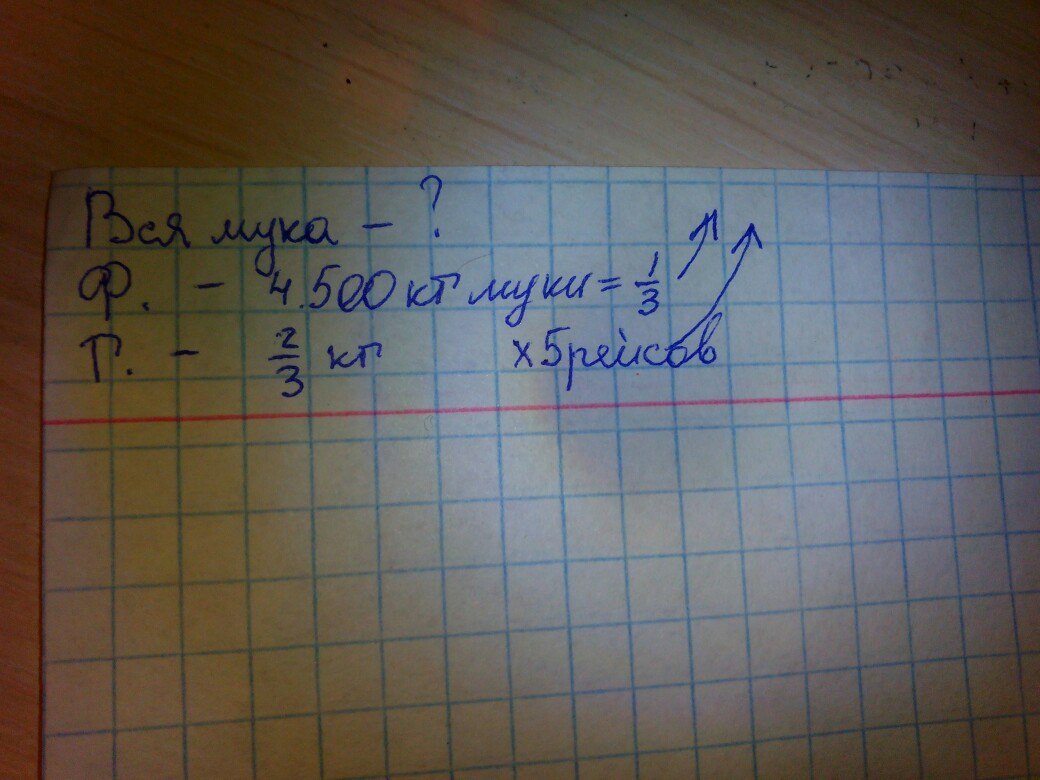 Вся мука – ?
Ф. – 4.500 кг муки = 1/3
Г. – 2/3 кг х 5 рейсов